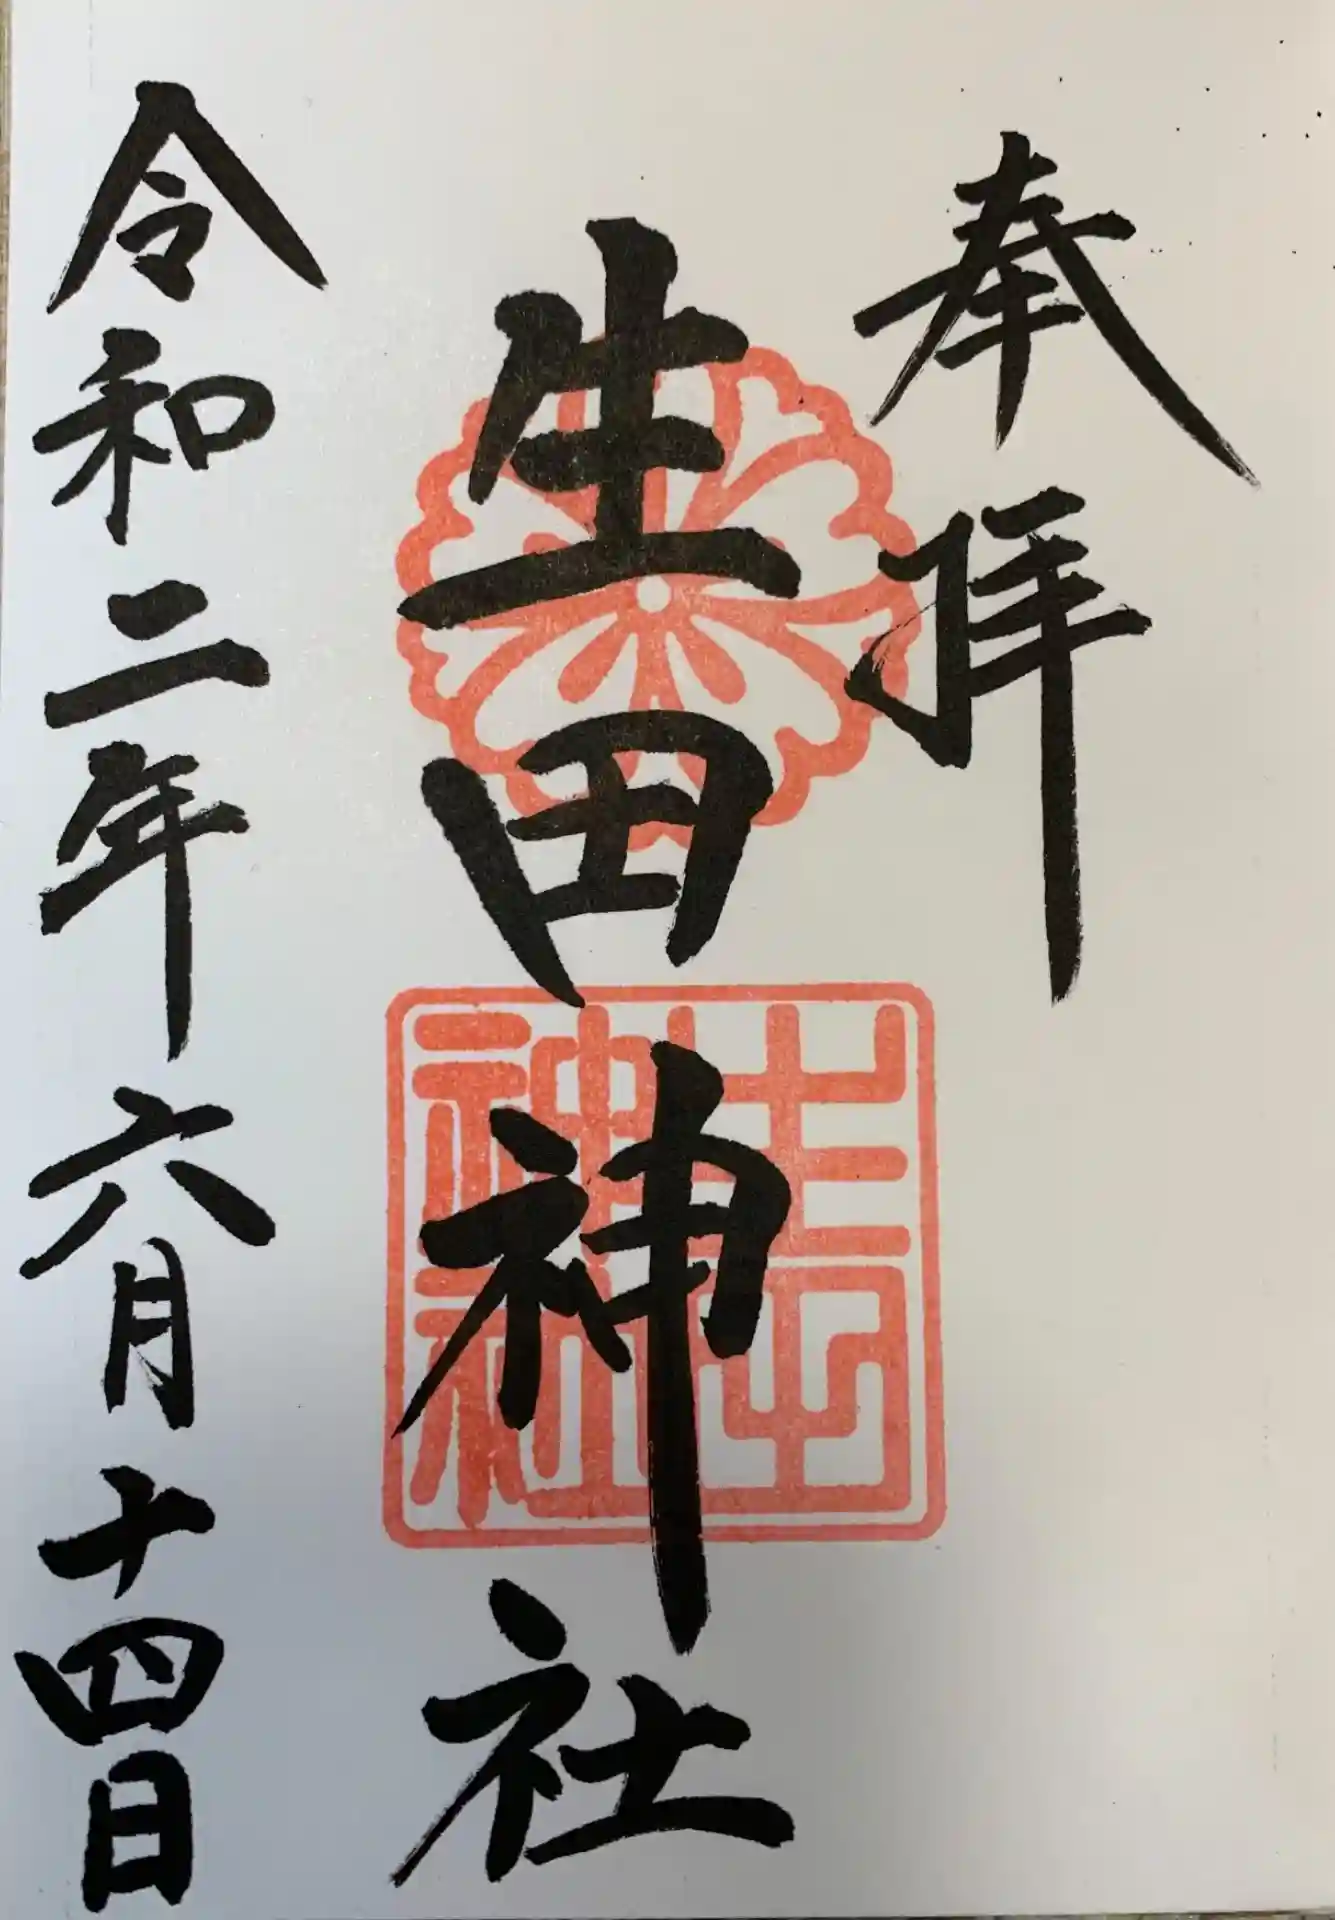 奉拝
生田神社
生田神社
令和二年六月十四日